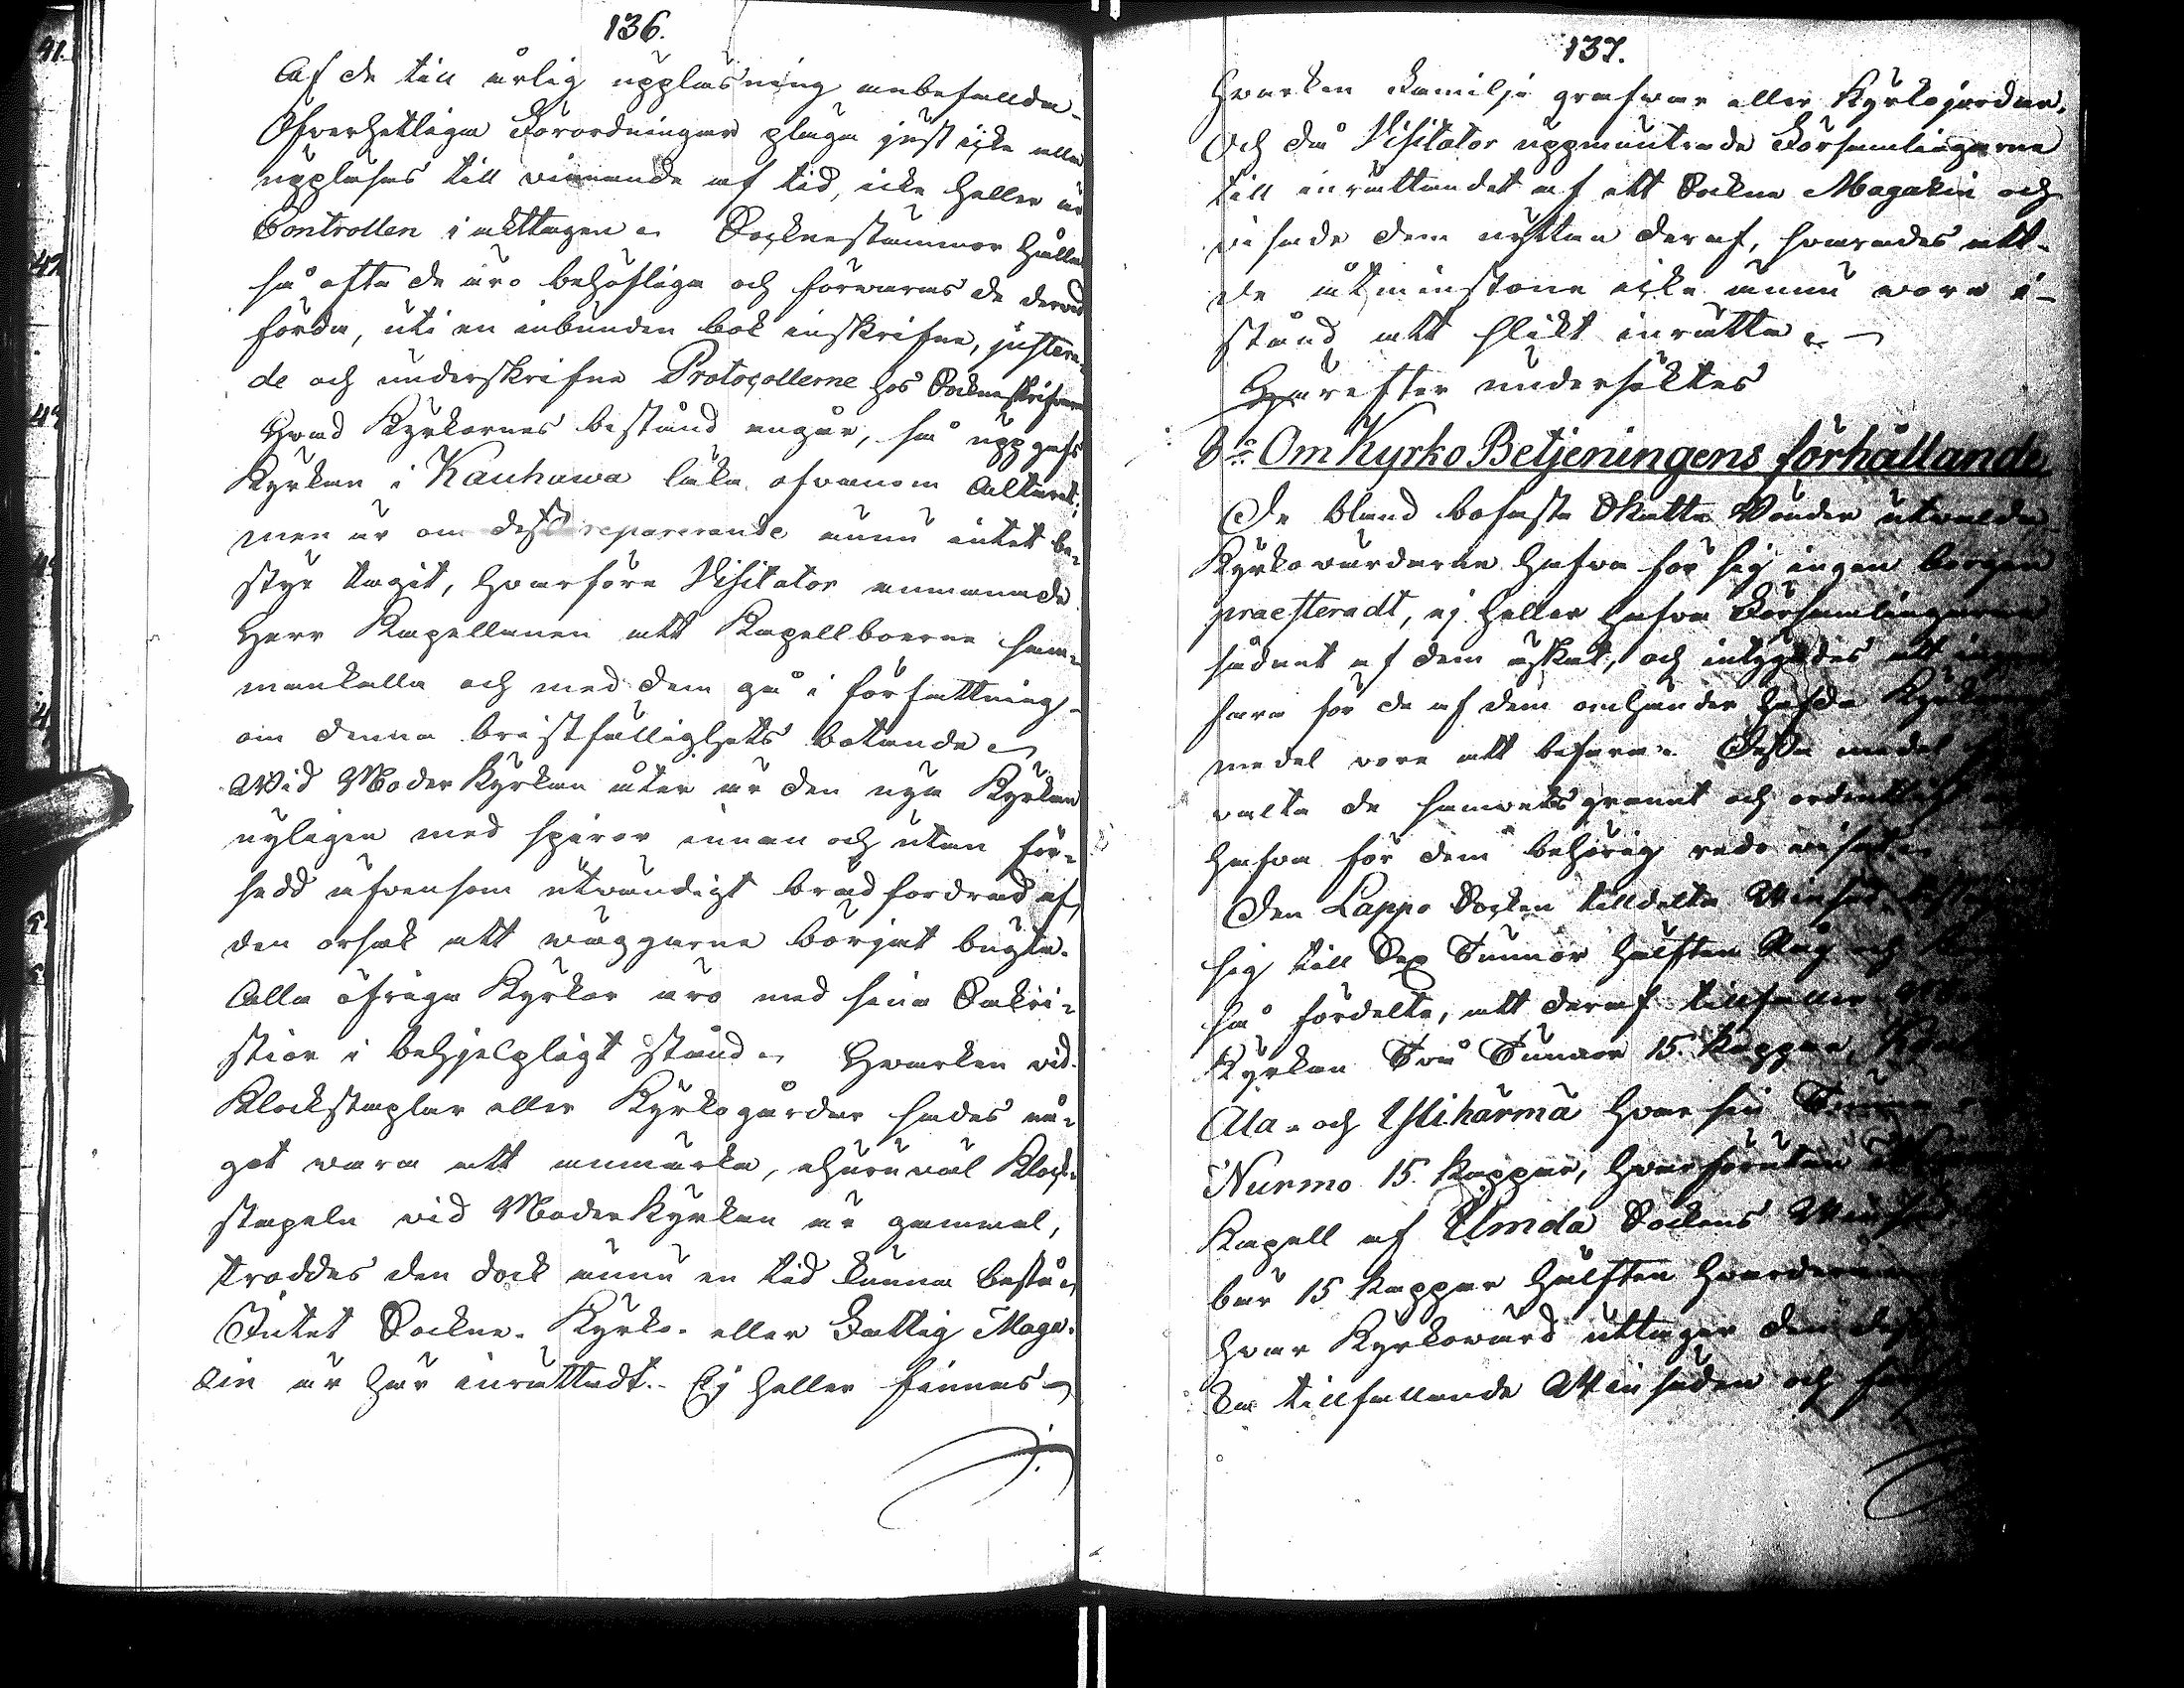 136.
Af de till årlig uppläsning anbefallda
Öfverhetliga Förordningar pläga just icke alla
uppläsas till vinnande af tid, icke heller är
Controllen i akttagen. Socknestämmor hållas
så ofta de äro behöfliga och förwaras de dervid
förda, uti en inbunden bok inskrifne, justera-
de och underskrifne Protocollerne hos Socknskrifvaren
Hvad Kyrkornes bestånd angår, så uppgafs
Kyrkan i Kauhawa läka ofvanom Altaret;
men är om dess reparerande ännu intet be-
styr tagit, hvarföre Visitator anmanade
Herr Kapellanen att Kapellboerne sam-
mankalla och med dem gå i författning
om denna bristfällighets botande.
Wid Moder Kyrkan åter är den nya Kyrkan
nyligen med spiror innan och utan för-
sedd äfvensom utvändigt brädfordrad af
den orsak att wäggarne börjat bugta.
Alla öfriga Kyrkor äro med sina Sakri-
stior i behjelpligt stånd. Hwarken vid
Klockstaplar eller Kyrkogårdar sades nå-
got wara att anmärka, ehuruväl Klock-
stapeln vid Moderkyrkan är gammal,
troddes den dock ännu en tid kunna bestå.
Intet Sockne- Kyrko- eller Fattig Maga-
sin är här inrättadt. Ej heller finnas
137.
Hvarken Familje grafvar eller Kyrkojordar.
Och då Visitator uppmuntrade Församlingarne
till inrättandet af ett Sockne Magasin och
visade dem nyttan deraf, svarades att
de åtminstone icke ännu voro i
stånd att slikt inrätta.
Härefter undersöktes
8:o Om Kyrko Betjeningens förhållande
De bland bofasta Skatte Bönder utvalda
Kyrkovärdarne hafva för sig ingen borgen
praesteradt, ej heller hafva Församlingarne
sådant af dem äskat, och intygades att ingen
fara för de af dem omhänder hafda Kyrkans
medel vore att befara. Dessa medel
valta de samvetsgrannt och ordentligt
hafva för dem behörig redo visat.
Den Lappo Socken tilldelta Winsäd
sig till Sex Tunnor hälften Råg och
så fördelte, att deraf tillfaller
Kyrkan Två Tunnor 15. Kappar,
Ala- och Ylihärmä hvar sin Tunna
Nurmo 15. Kappar, hvarförutan
Kapell af Umola Sockens Winsäd
bär 15 Kappar hälften hvardera
hvar Kyrkovärd uttager den
ka tillfallande Winsäden och